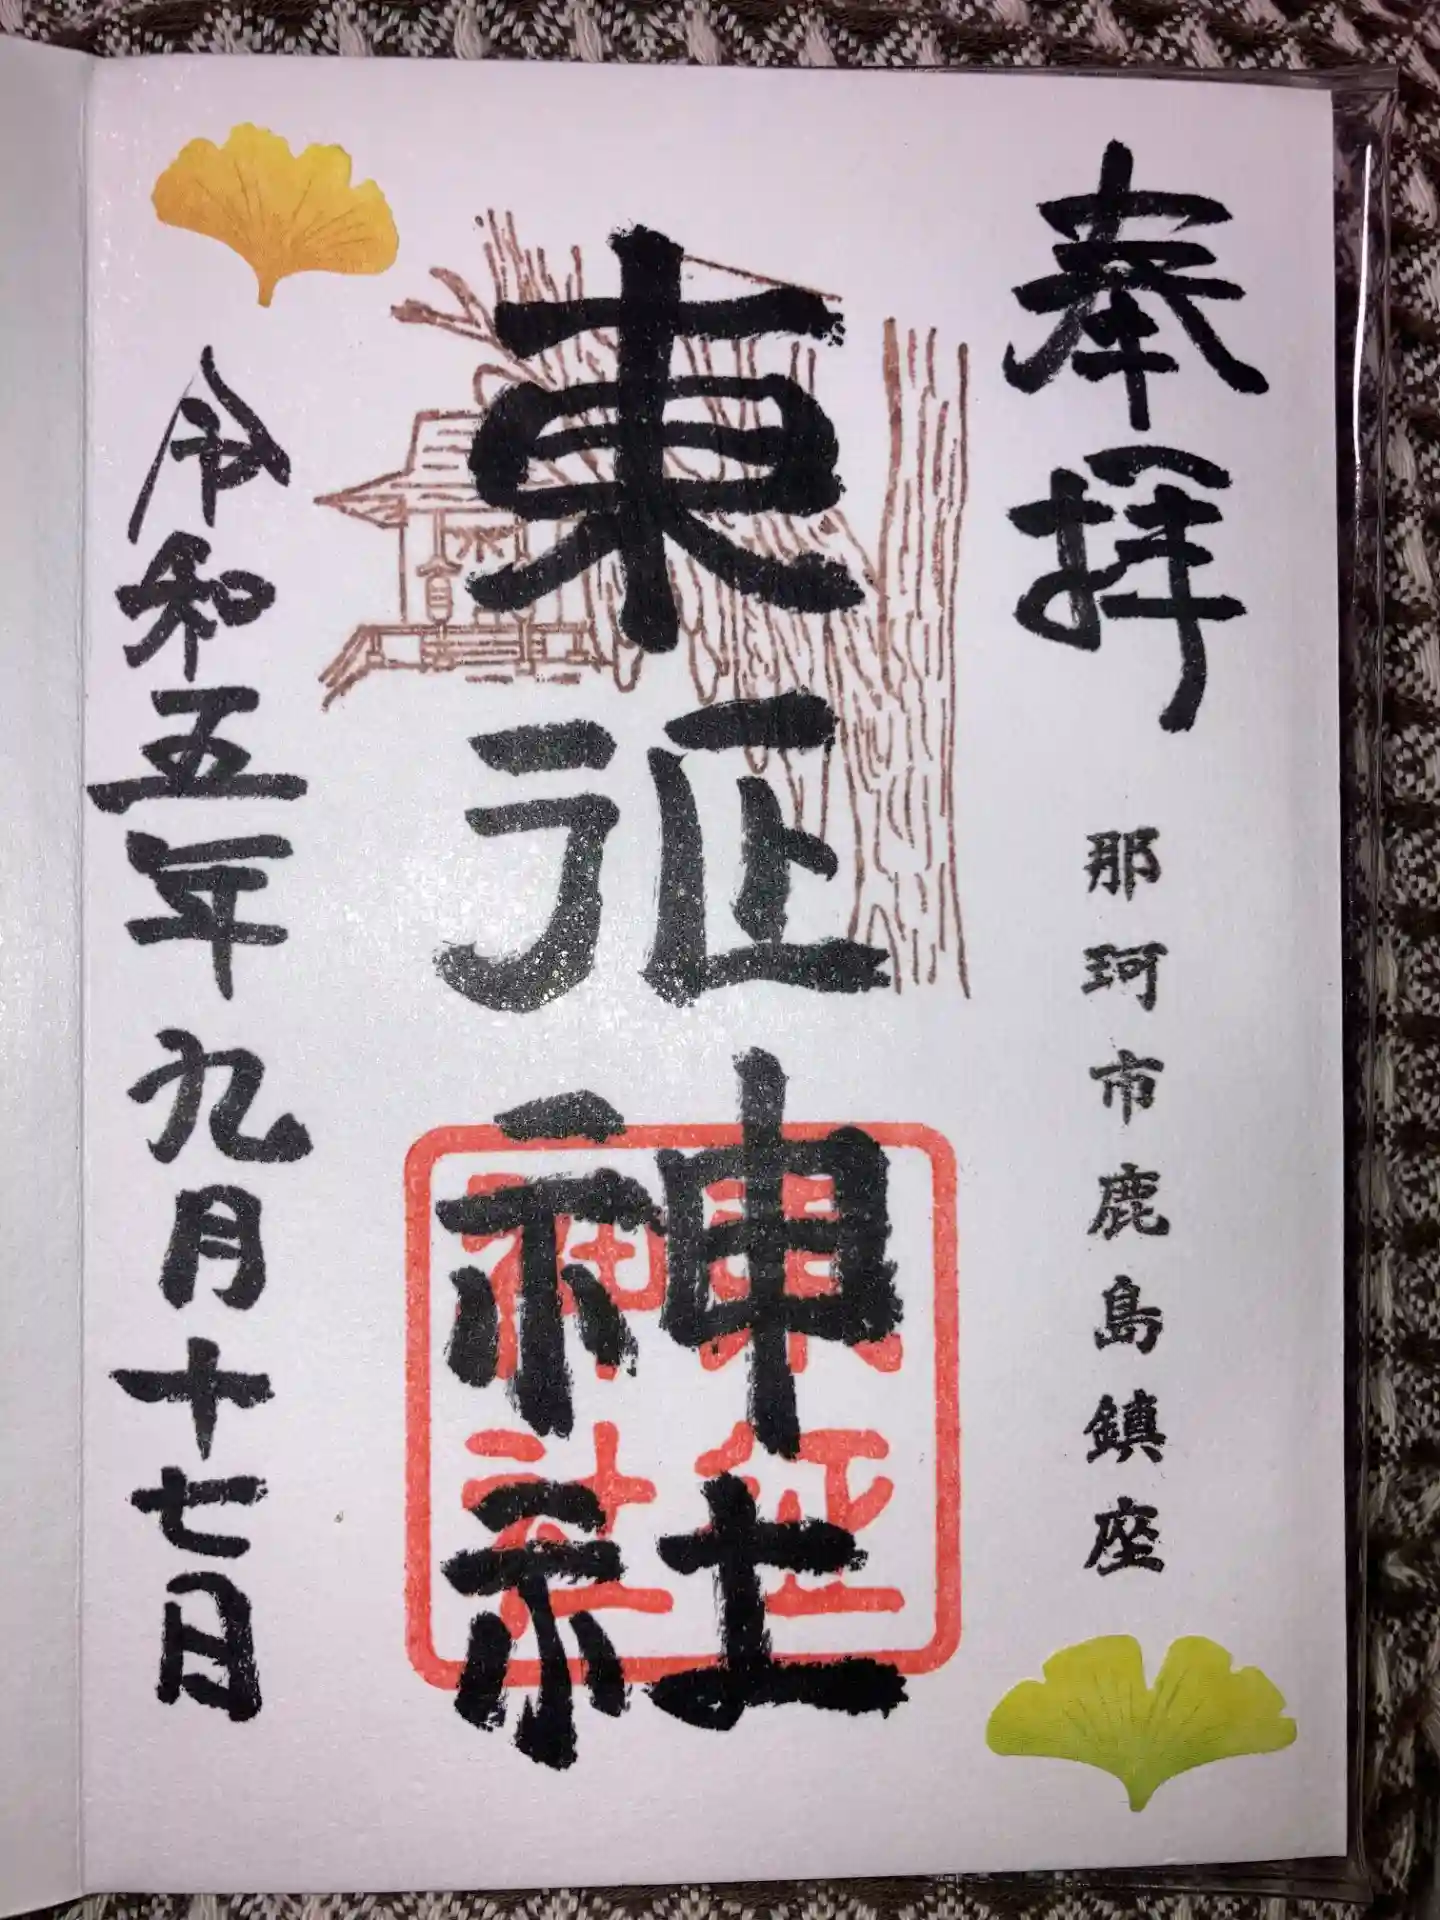 奉拝
那珂市鹿島鎮座
東征神社
東征
神社
令和五年九月十七日